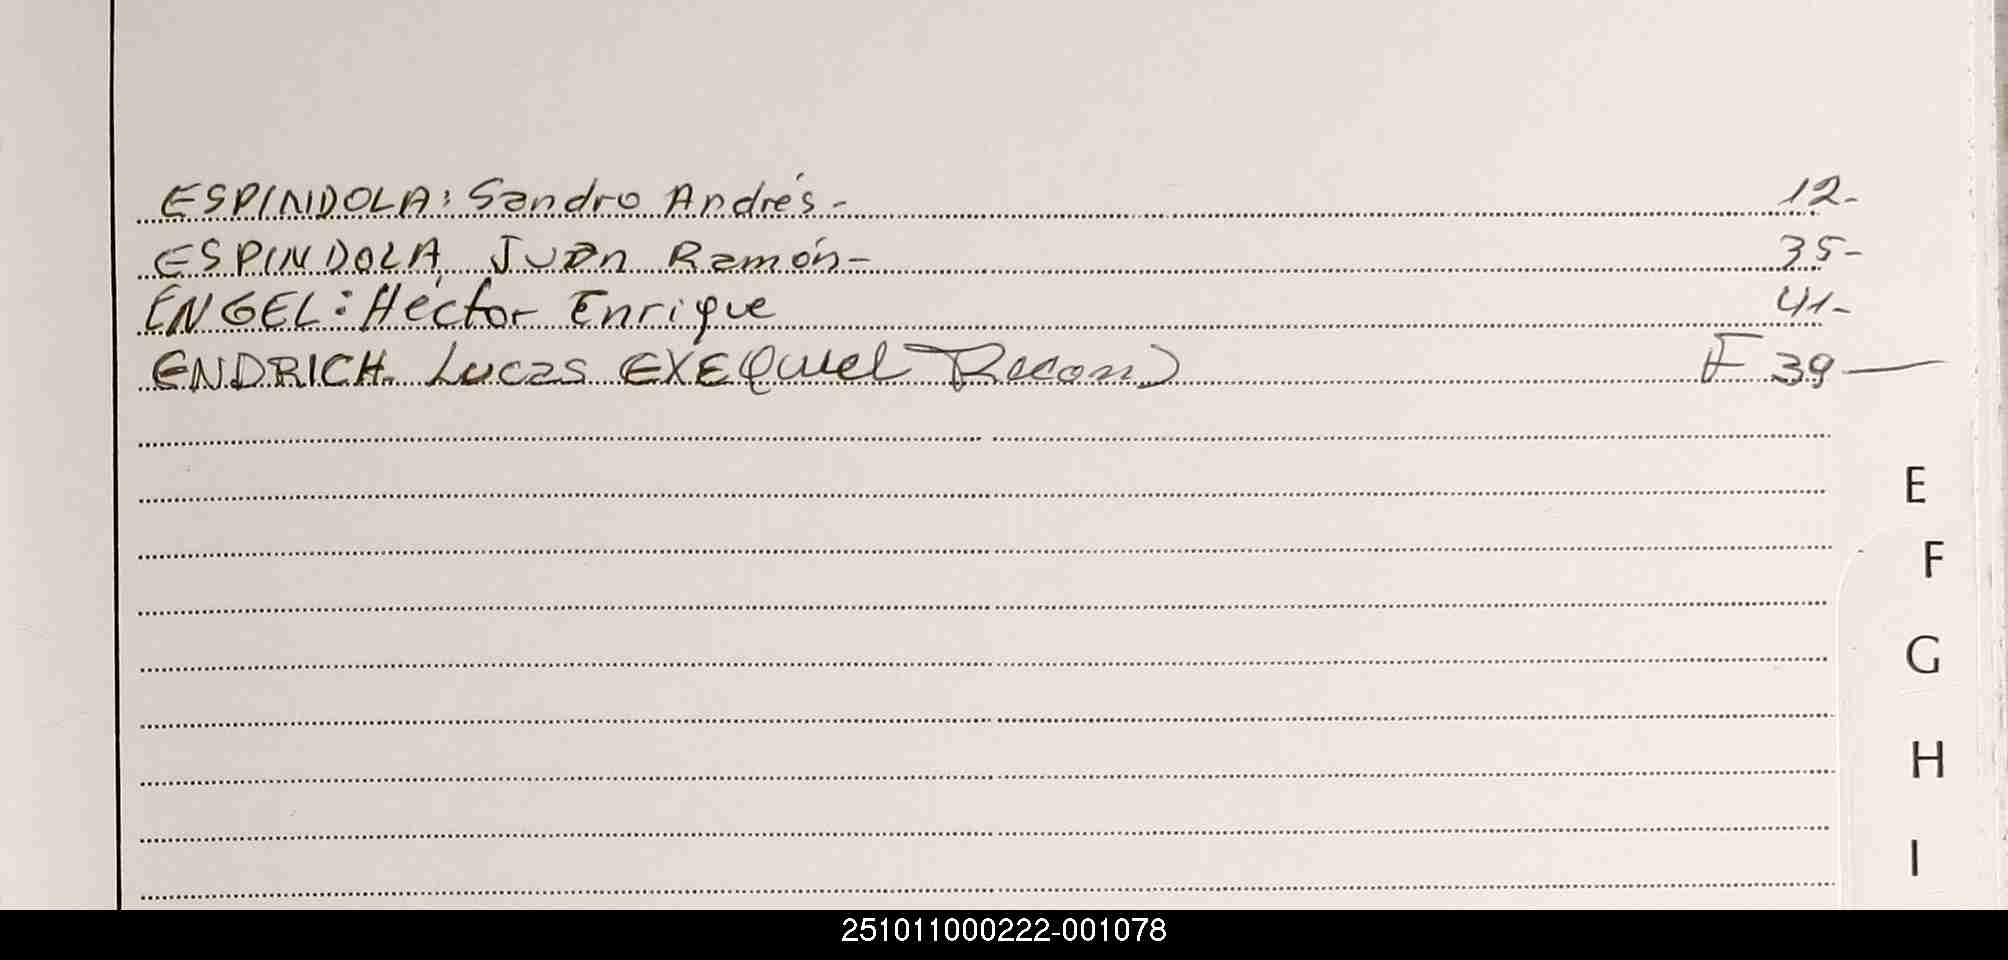 ESPINDOLA: Sandro Andrés - 12-
ESPINDOLA, Juan Ramón - 35-
ENGEL: Héctor Enrique 41-
ENDRICH. Lucas EXEQuiel Recon) F 39 —
E
F
G
H
I
251011000222-001078